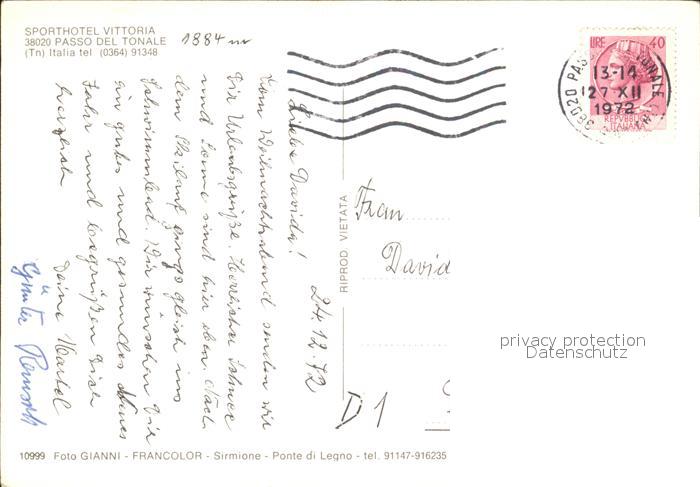 SPORTHOTEL VITTORIA
38020 PASSO DEL TONALE
(Tn) Italia tel (0364) 91348
1884 m
LIRE 40
REPVBBLICA
ITALIANA
38020 PAS TONALE
13-14
27 XII
1972
24.12.72
Liebe Davida!
Vom Weihnachtsabend senden wir
Dir Urlaubsgrüße. Herrlicher Schnee
und Sonne sind hier oben. Nach
dem Skilauf gings gleich ins
Schwimmbad. Wir wünschen Dir
ein gutes und gesundes Neues
Jahr und begrüßen Dich
herzlich
Deine
Günter
RIPROD VIETATA
Frau
David
D 1
privacy protection
Datenschutz
10999 Foto GIANNI - FRANCOLOR - Sirmione - Ponte di Legno - tel. 91147-916235